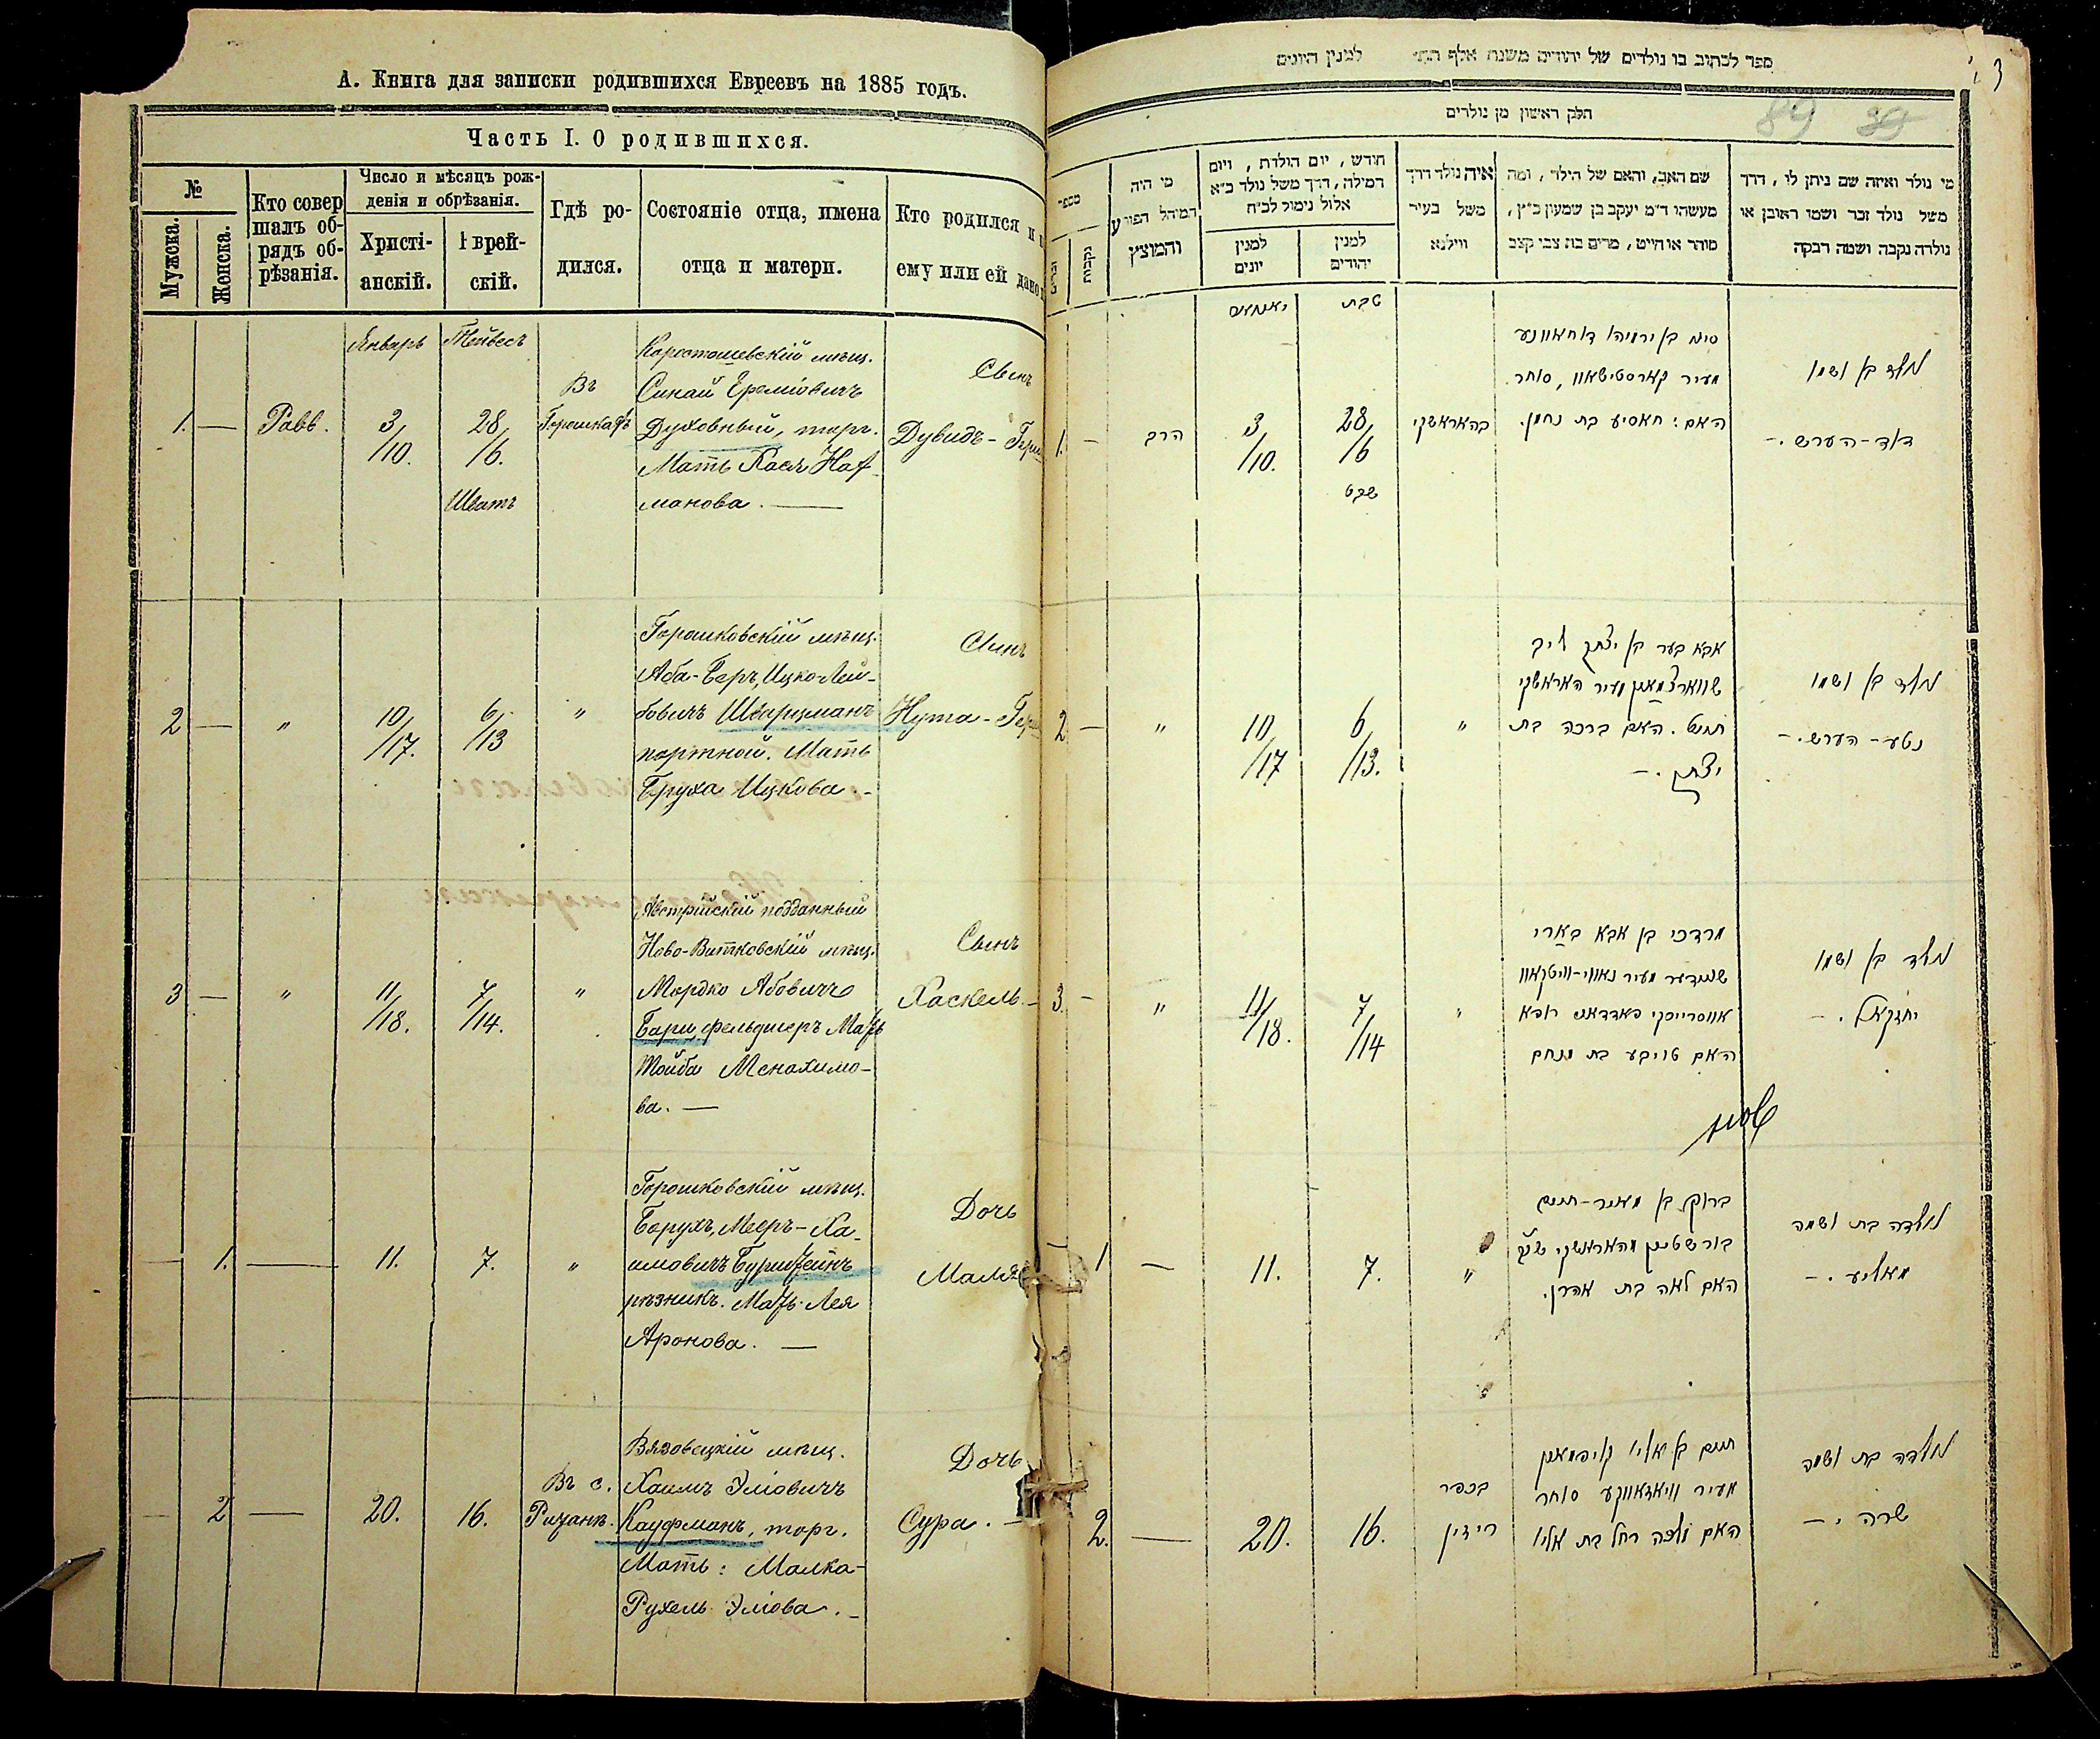 А. Книга для записки родившихся Евреевъ на 1885 годъ.
Часть I. О родившихся.
№
Мужска.
Женска.
Кто совер
шалъ об-
рядъ об-
рѣзанія.
Число и мѣсяцъ рож-
денія и обрѣзанія.
Христі-
анскій.
Еврей-
скій.
Гдѣ ро-
дился.
Состояніе отца, имена
отца и матери.
Кто родился и
ему или ей дано
Январь
Тейвесъ
1. — Равв.
3/10.
28/6.
Шватъ
Въ
Горошкахъ
Коростошевскій мѣщ.
Синай Ереміовичъ
Духовный, торг.
Мать Хася Нах-
манова. —
Сынъ
Дувидъ-Герш
2 — "
10/17.
6/13
"
Горошковскій мѣщ.
Аба-Беръ, Ицко-Лей-
бовичъ Шварцманъ
портной. Мать
Бруха Ицкова -
Сынъ
Нута-Герш
3 — "
11/18.
7/14.
"
Австрійскій подданный
Ново-Витковскій мѣщ.
Мордко Абовичъ
Бари, фельдшеръ Мать
Тойба Менахимо-
ва. —
Сынъ
Хаскель. -
— 1. —
11.
7.
"
Горошковскій мѣщ.
Борухъ, Меер-Ха-
имовичъ Бурштейнъ
рѣзникъ. Мать Лея
Аронова. —
Дочь
Маля
— 2 —
20.
16.
Въ с.
Рижанѣ.
Вязовецкій мѣщ.
Хаимъ Эліовичъ
Кауфманъ, торг.
Мать: Малка-
Рухель Эліова. -
Дочь
Сура. —
3
89 39
ספר לכתוב בו נולדים של יהודים משנת אלף תת״ למנין היונים
חלק ראשון מן נולדים
מספר
זכרים
נקבות
מי היה
המוהל הפורע
והמוצץ
חודש, יום הולדת, ויום
המילה, דרך משל נולד כ״א
אלול נימול לכ״ח
למנין
יונים
למנין
יהודים
איה נולד דרך
משל בעיר
ווילנא
שם האב, והאם של הילד, ומה
מעשהו ד״מ יעקב בן שמעון כ״ץ,
סוחר או חייט, מרים בת צבי קצב
מי נולד ואיזה שם ניתן לו, דרך
משל נולד זכר ושמו ראובן או
נולדה נקבה ושמה רבקה
טבת
1. — הרב
3/10.
28/6
שבט
בהאראשקי
סיני בן ירמיהו דוחאוונע
מעיר קארסטישאוו, סוחר.
האם: חאסיע בת נחמן.
נולד בן ושמו
דוד-הערש. -
2 — "
10/17
6/13.
"
אבא בער בן יצחק ליב
שווארצמאן מעיר האראשקי
חייט. האם ברכה בת
יצחק. -
נולד בן ושמו
נטע-הערש. -
3. — "
11/18.
7/14
"
מרדכי בן אבא בארי
מעיר נאווי-וויטקאוו
רופא
האם טויבע בת מנחם
נולד בן ושמו
יחזקאל. -
— 1 —
11.
7.
"
ברוך בן מאיר-חיים
בורשטיין מהאראשקי שו״ב
האם לאה בת אהרן.
נולדה בת ושמה
מאליע. -
2. —
20.
16.
בכפר
חיים בן אליו קויפמאן
מעיר וויאזאווקע סוחר
האם מלכה רחל בת אליו
נולדה בת ושמה
שרה. -